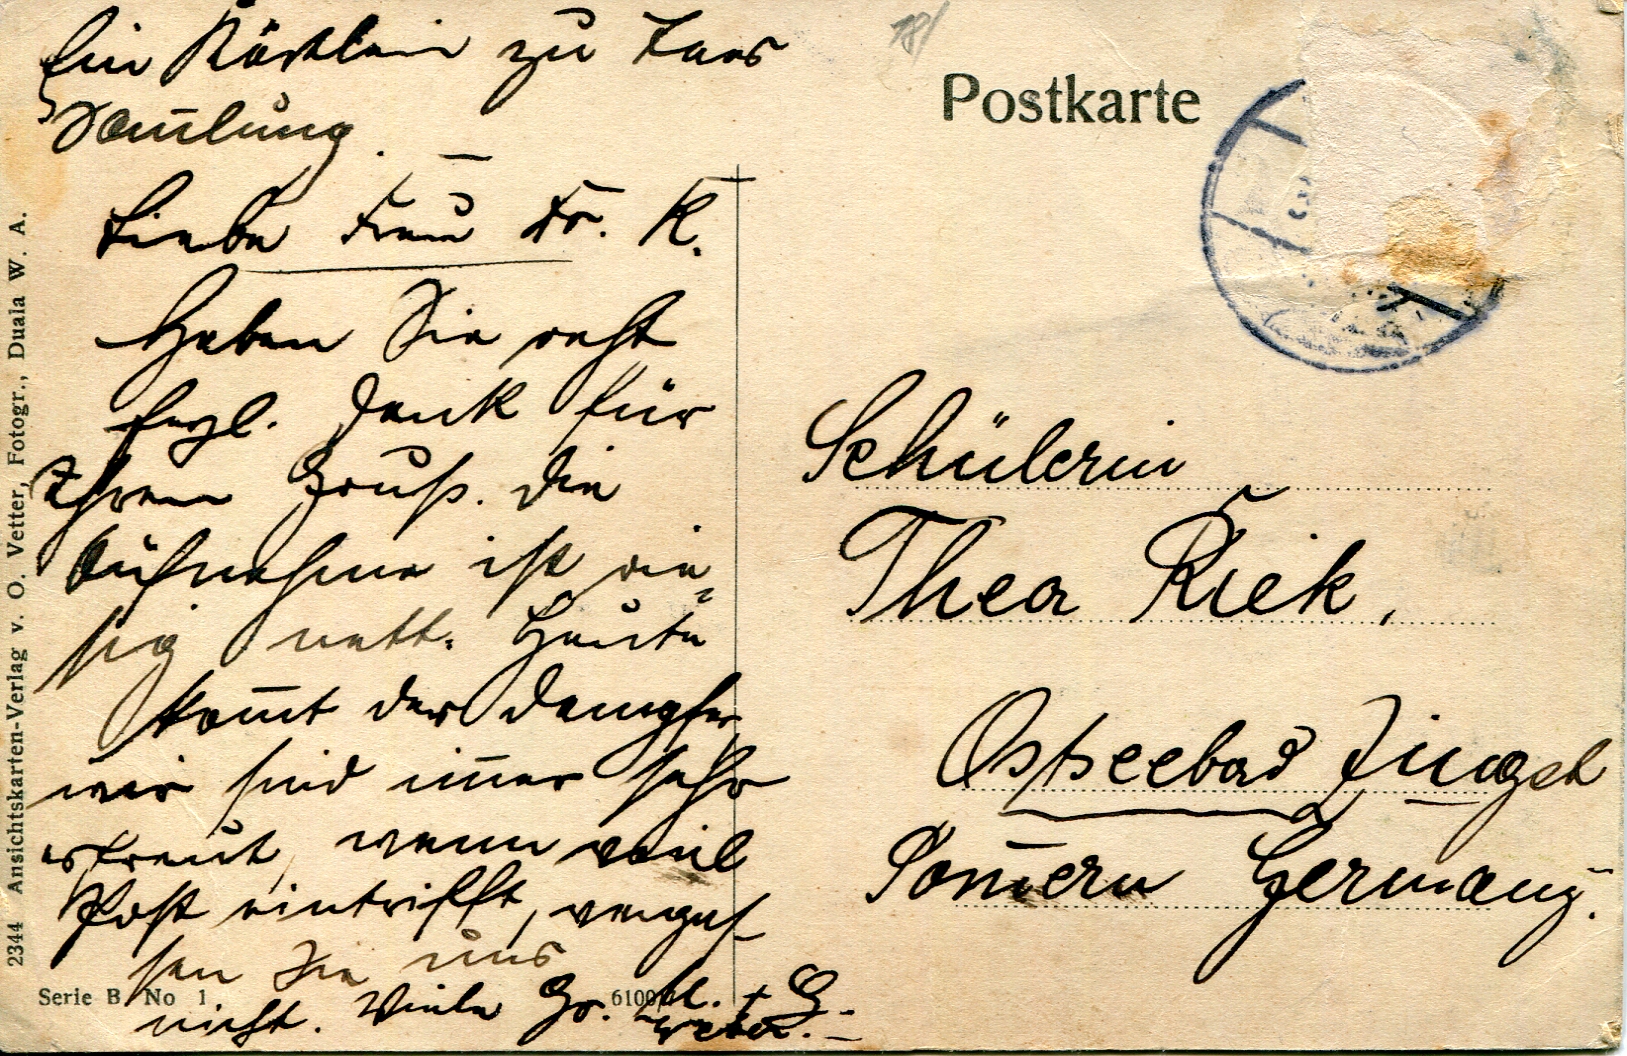 Ein Kärtlein zu Taos
Sam̄lung.
Liebe Frau Dr. K.
Haben Sie recht
herzl. Dank für
Ihren Gruß. Die
Aufnahme ist rie=
sig nett. Heute
kom̄t der Dampfer
wir sind im̄er sehr
erfreut, wenn viel
Post eintrifft, verges-
sen Sie uns
nicht. Viele Gr.
Postkarte
Schülerin
Thea Riek,
Ostseebad Zingst
Pom̄ern Germany.
2344 Ansichtskarten-Verlag v. O. Vetter, Fotogr., Duala W. A.
Serie B No 1